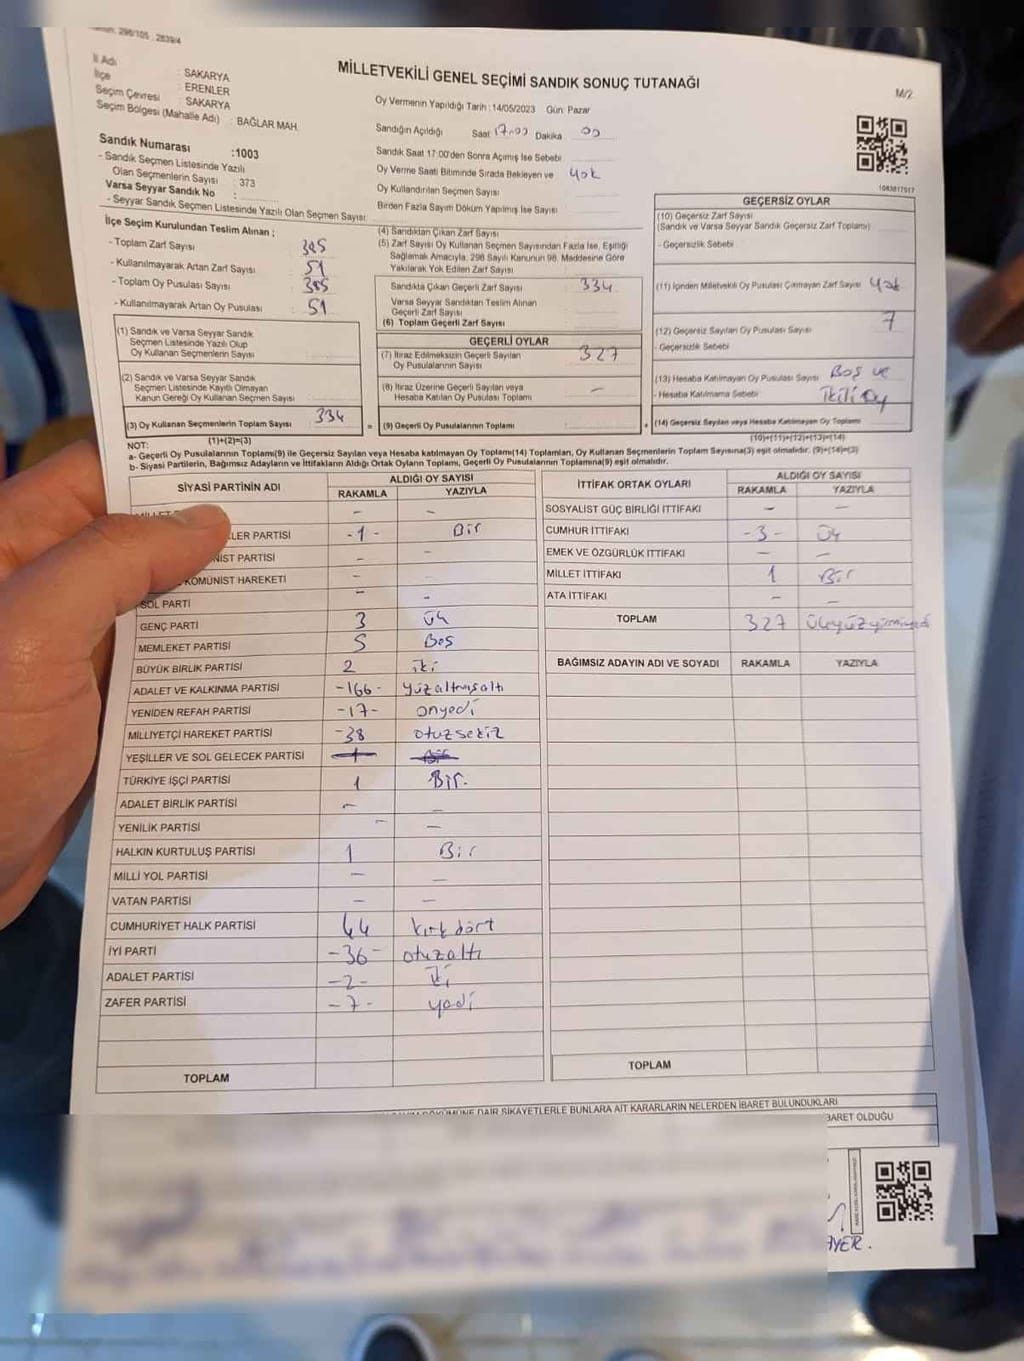 298/105 , 2839/4
İl Adı : SAKARYA
İlçe : ERENLER
Seçim Çevresi : SAKARYA
Seçim Bölgesi (Mahalle Adı) : BAĞLAR MAH.
MİLLETVEKİLİ GENEL SEÇİMİ SANDIK SONUÇ TUTANAĞI
M/2
Oy Vermenin Yapıldığı Tarih :14/05/2023 Gün: Pazar
Sandığın Açıldığı Saat 17.00 Dakika 00
Sandık Saat 17:00'den Sonra Açımış İse Sebebi
Oy Verme Saati Bitiminde Sırada Bekleyen ve yok
Oy Kullandırılan Seçmen Sayısı
Birden Fazla Sayım Döküm Yapılmış İse Sayısı
1083817517
Sandık Numarası :1003
- Sandık Seçmen Listesinde Yazılı
Olan Seçmenlerin Sayısı : 373
Varsa Seyyar Sandık No :
- Seyyar Sandık Seçmen Listesinde Yazılı Olan Seçmen Sayısı:
İlçe Seçim Kurulundan Teslim Alınan ;
- Toplam Zarf Sayısı 385
- Kullanılmayarak Artan Zarf Sayısı 51
- Toplam Oy Pusulası Sayısı : 385
- Kullanılmayarak Artan Oy Pusulası : 51
(1) Sandık ve Varsa Seyyar Sandık
Seçmen Listesinde Yazılı Olup
Oy Kullanan Seçmenlerin Sayısı
(2) Sandık ve Varsa Seyyar Sandık
Seçmen Listesinde Kayıtlı Olmayan
Kanun Gereği Oy Kullanan Seçmen Sayısı
(3) Oy Kullanan Seçmenlerin Toplam Sayısı 334
(1)+(2)=(3)
(4) Sandıktan Çıkan Zarf Sayısı
(5) Zarf Sayısı Oy Kullanan Seçmen Sayısından Fazla İse, Eşitliği
Sağlamak Amacıyla, 298 Sayılı Kanunun 98. Maddesine Göre
Yakılarak Yok Edilen Zarf Sayısı
Sandıkta Çıkan Geçerli Zarf Sayısı 334
Varsa Seyyar Sandıktan Teslim Alınan
Geçerli Zarf Sayısı
(6) Toplam Geçerli Zarf Sayısı
GEÇERLİ OYLAR
(7) İtiraz Edilmeksizin Geçerli Sayılan 327
Oy Pusulalarının Sayısı
(8) İtiraz Üzerine Geçerli Sayılan veya –
Hesaba Katılan Oy Pusulası Toplamı
= (9) Geçerli Oy Pusulalarının Toplamı +
GEÇERSİZ OYLAR
(10) Geçersiz Zarf Sayısı
(Sandık ve Varsa Seyyar Sandık Geçersiz Zarf Toplamı)
- Geçersizlik Sebebi
(11) İçinden Milletvekili Oy Pusulası Çıkmayan Zarf Sayısı yok
(12) Geçersiz Sayılan Oy Pusulası Sayısı 7
- Geçersizlik Sebebi
(13) Hesaba Katılmayan Oy Pusulası Sayısı Boş ve
- Hesaba Katılmama Sebebi ikili oy
(14) Geçersiz Sayılan veya Hesaba Katılmayan Oy Toplamı
(10)+(11)+(12)+(13)=(14)
NOT:
a- Geçerli Oy Pusulalarının Toplamı(9) ile Geçersiz Sayılan veya Hesaba katılmayan Oy Toplamı(14) Toplamları, Oy Kullanan Seçmenlerin Toplam Sayısına(3) eşit olmalıdır. (9)+(14)=(3)
b- Siyasi Partilerin, Bağımsız Adayların ve İttifakların Aldığı Ortak Oyların Toplamı, Geçerli Oy Pusulalarının Toplamına(9) eşit olmalıdır.
SİYASİ PARTİNİN ADI ALDIĞI OY SAYISI
RAKAMLA YAZIYLA
MİLLET – –
LER PARTİSİ -1- Bir
NİST PARTİSİ – –
KOMÜNİST HAREKETİ – –
SOL PARTİ – –
GENÇ PARTİ 3 üç
MEMLEKET PARTİSİ 5 Beş
BÜYÜK BİRLİK PARTİSİ 2 iki
ADALET VE KALKINMA PARTİSİ -166- yüzaltmışaltı
YENİDEN REFAH PARTİSİ -17- onyedi
MİLLİYETÇİ HAREKET PARTİSİ -38 otuzsekiz
YEŞİLLER VE SOL GELECEK PARTİSİ 1 Bir
TÜRKİYE İŞÇİ PARTİSİ 1 Bir.
ADALET BİRLİK PARTİSİ – –
YENİLİK PARTİSİ – –
HALKIN KURTULUŞ PARTİSİ 1 Bir
MİLLİ YOL PARTİSİ – –
VATAN PARTİSİ – –
CUMHURİYET HALK PARTİSİ 44 kırkdört
İYİ PARTİ -36- otuzaltı
ADALET PARTİSİ -2- iki
ZAFER PARTİSİ -7- yedi
TOPLAM
İTTİFAK ORTAK OYLARI ALDIĞI OY SAYISI
RAKAMLA YAZIYLA
SOSYALİST GÜÇ BİRLİĞİ İTTİFAKI – –
CUMHUR İTTİFAKI -3- üç
EMEK VE ÖZGÜRLÜK İTTİFAKI – –
MİLLET İTTİFAKI 1 Bir
ATA İTTİFAKI – –
TOPLAM 327 üçyüzyirmiyedi
BAĞIMSIZ ADAYIN ADI VE SOYADI RAKAMLA YAZIYLA
TOPLAM
DÖKÜMÜNE DAİR ŞİKAYETLERLE BUNLARA AİT KARARLARIN NELERDEN İBARET BULUNDUKLARI
BARET OLDUĞU
AYER.